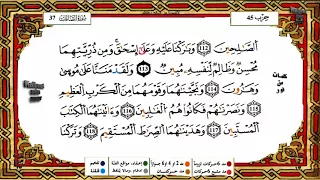 حزب 45
سورة الصافات 37
ٱلصَّٰلِحِينَ 112 وَبَٰرَكْنَا عَلَيْهِ وَعَلَىٰٓ إِسْحَٰقَ وَمِن ذُرِّيَّتِهِمَا
مُحْسِنٌ وَظَالِمٌ لِّنَفْسِهِۦ مُبِينٌ 113 وَلَقَدْ مَنَنَّا عَلَىٰ مُوسَىٰ
وَهَٰرُونَ 114 وَنَجَّيْنَٰهُمَا وَقَوْمَهُمَا مِنَ ٱلْكَرْبِ ٱلْعَظِيمِ
115 وَنَصَرْنَٰهُمْ فَكَانُوا۟ هُمُ ٱلْغَٰلِبِينَ 116 وَءَاتَيْنَٰهُمَا ٱلْكِتَٰبَ
ٱلْمُسْتَبِينَ 117 وَهَدَيْنَٰهُمَا ٱلصِّرَٰطَ ٱلْمُسْتَقِيمَ 118 وَتَرَكْنَا